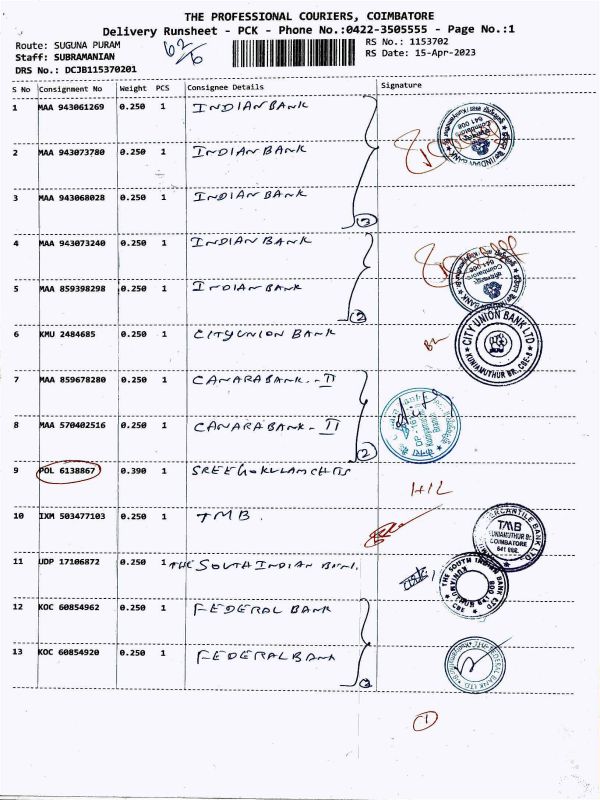 THE PROFESSIONAL COURIERS, COIMBATORE
Delivery Runsheet - PCK - Phone No.:0422-3505555 - Page No.:1
Route: SUGUNA PURAM
RS No.: 1153702
Staff: SUBRAMANIAN
62/6
RS Date: 15-Apr-2023
DRS No.: DCJB115370201
S No Consignment No Weight PCS Consignee Details Signature
1 MAA 943061269 0.250 1 INDIAN BANK
2 MAA 943073780 0.250 1 INDIAN BANK
3 MAA 943068028 0.250 1 INDIAN BANK
3
4 MAA 943073240 0.250 1 INDIAN BANK
5 MAA 859398298 0.250 1 INDIAN BANK
2
6 KMU 2484685 0.250 1 CITY UNION BANK
CITY UNION BANK LTD
KUNIAMUTHUR BR., CBE-8
7 MAA 859678280 0.250 1 CANARA BANK - II
8 MAA 570402516 0.250 1 CANARA BANK - II
2
9 POL 6138867 0.390 1 SREE GOKULAM CHITS
H/L
10 IXM 503477103 0.250 1 TMB.
MERCANTILE BANK LTD
TMB
KUNIAMUTHUR Br.
COIMBATORE
641 008.
11 UDP 17106872 0.250 1 THE SOUTH INDIAN BANK.
THE SOUTH INDIAN BANK LTD
CBE
12 KOC 60854962 0.250 1 FEDERAL BANK
13 KOC 60854920 0.250 1 FEDERAL BANK
2
THE FEDERAL BANK LTD
1